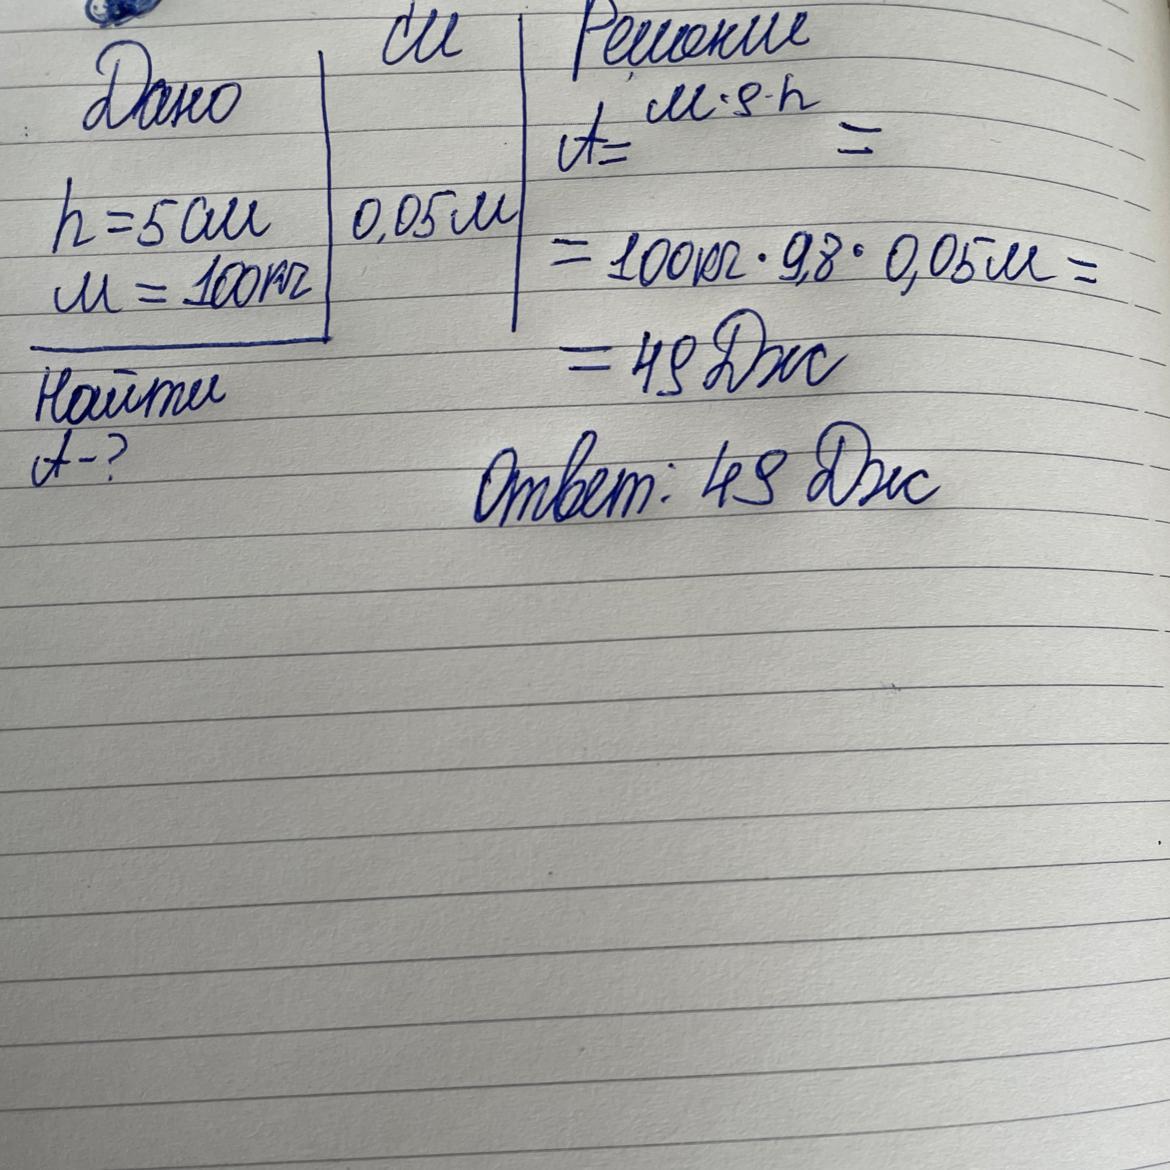 Дано
СИ
Решение
A = m·g·h =
h = 5 см
0,05 м
m = 100 кг
= 100 кг · 9,8 · 0,05 м =
= 49 Дж
Найти
A - ?
Ответ: 49 Дж